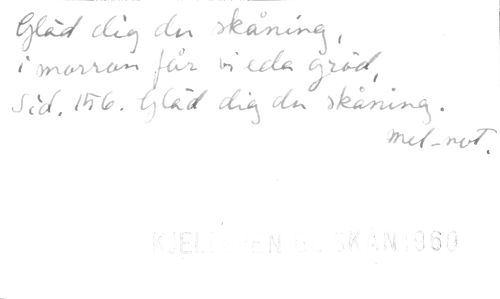 Gläd dig du skåning,
i morron får vi eda gröd,
Sid. 156. Gläd dig du skåning.
Mel-not.
SKÅN 1960